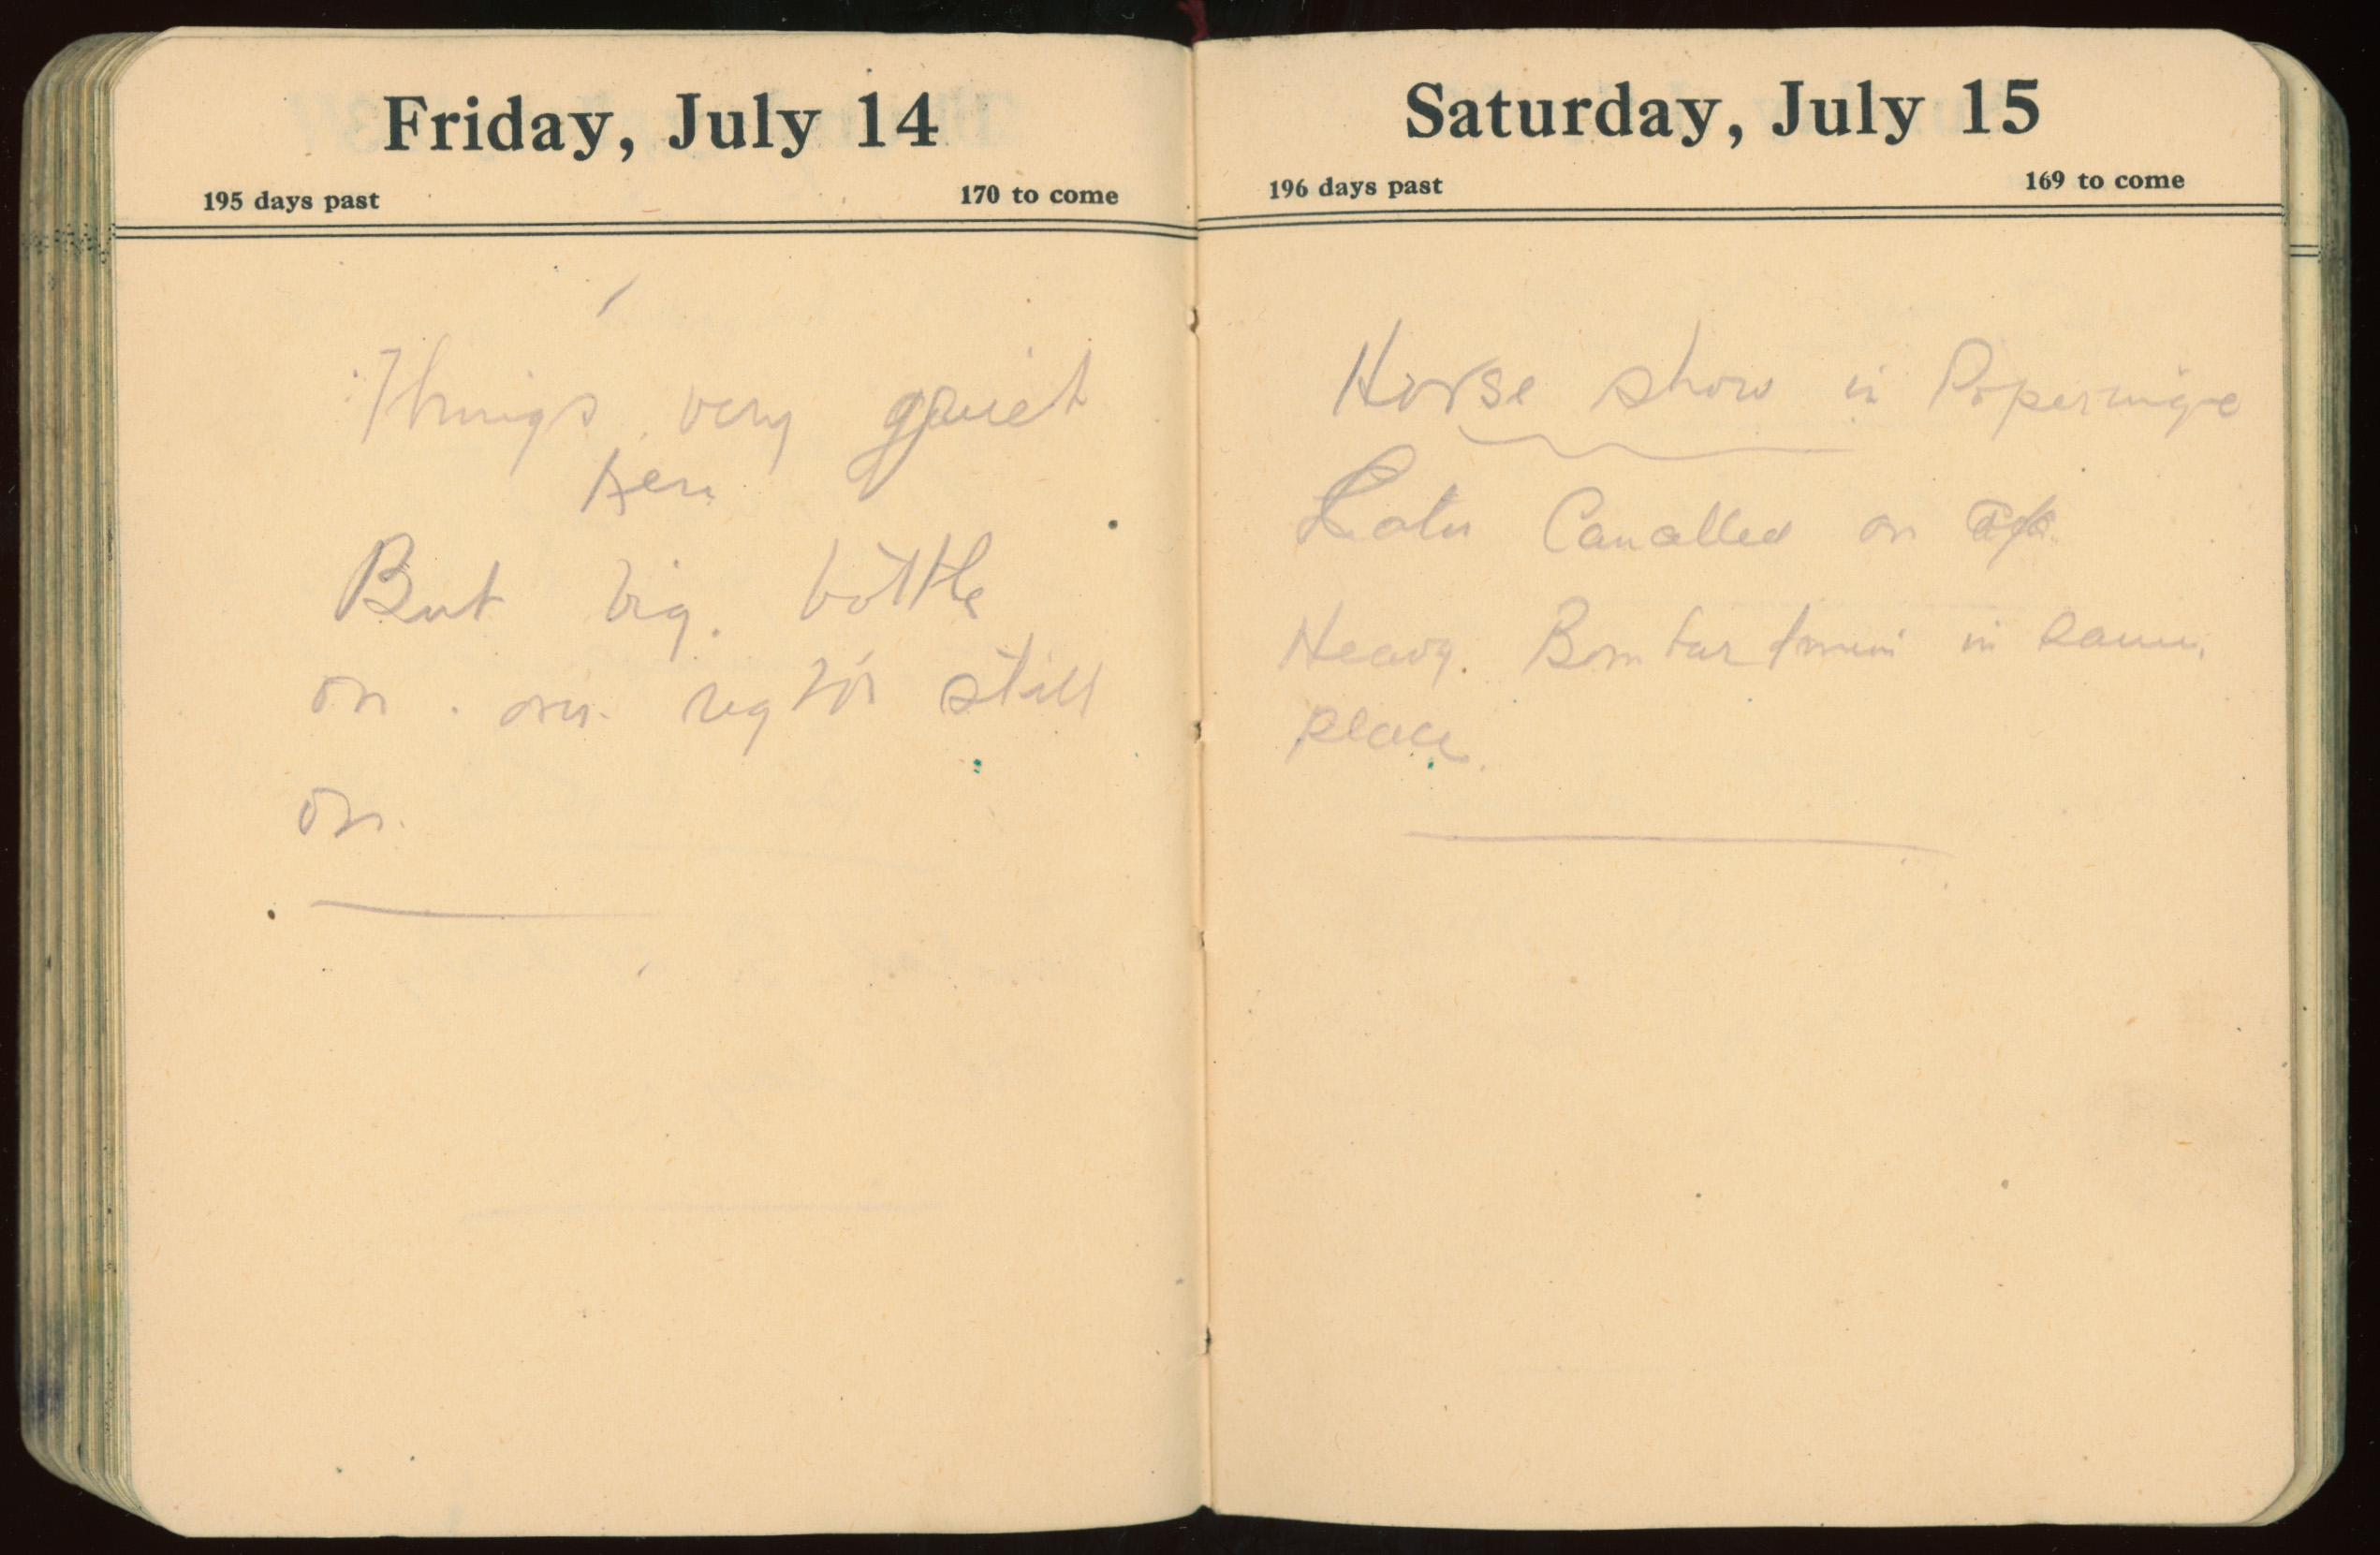 Friday, July 14
195 days past 170 to come
Things very quiet
here
But big battle
on. our still
on.
Saturday, July 15
196 days past 169 to come
Horse show in Poperinge
Later Cancelled on
Heavy. Bombardment in same
place.